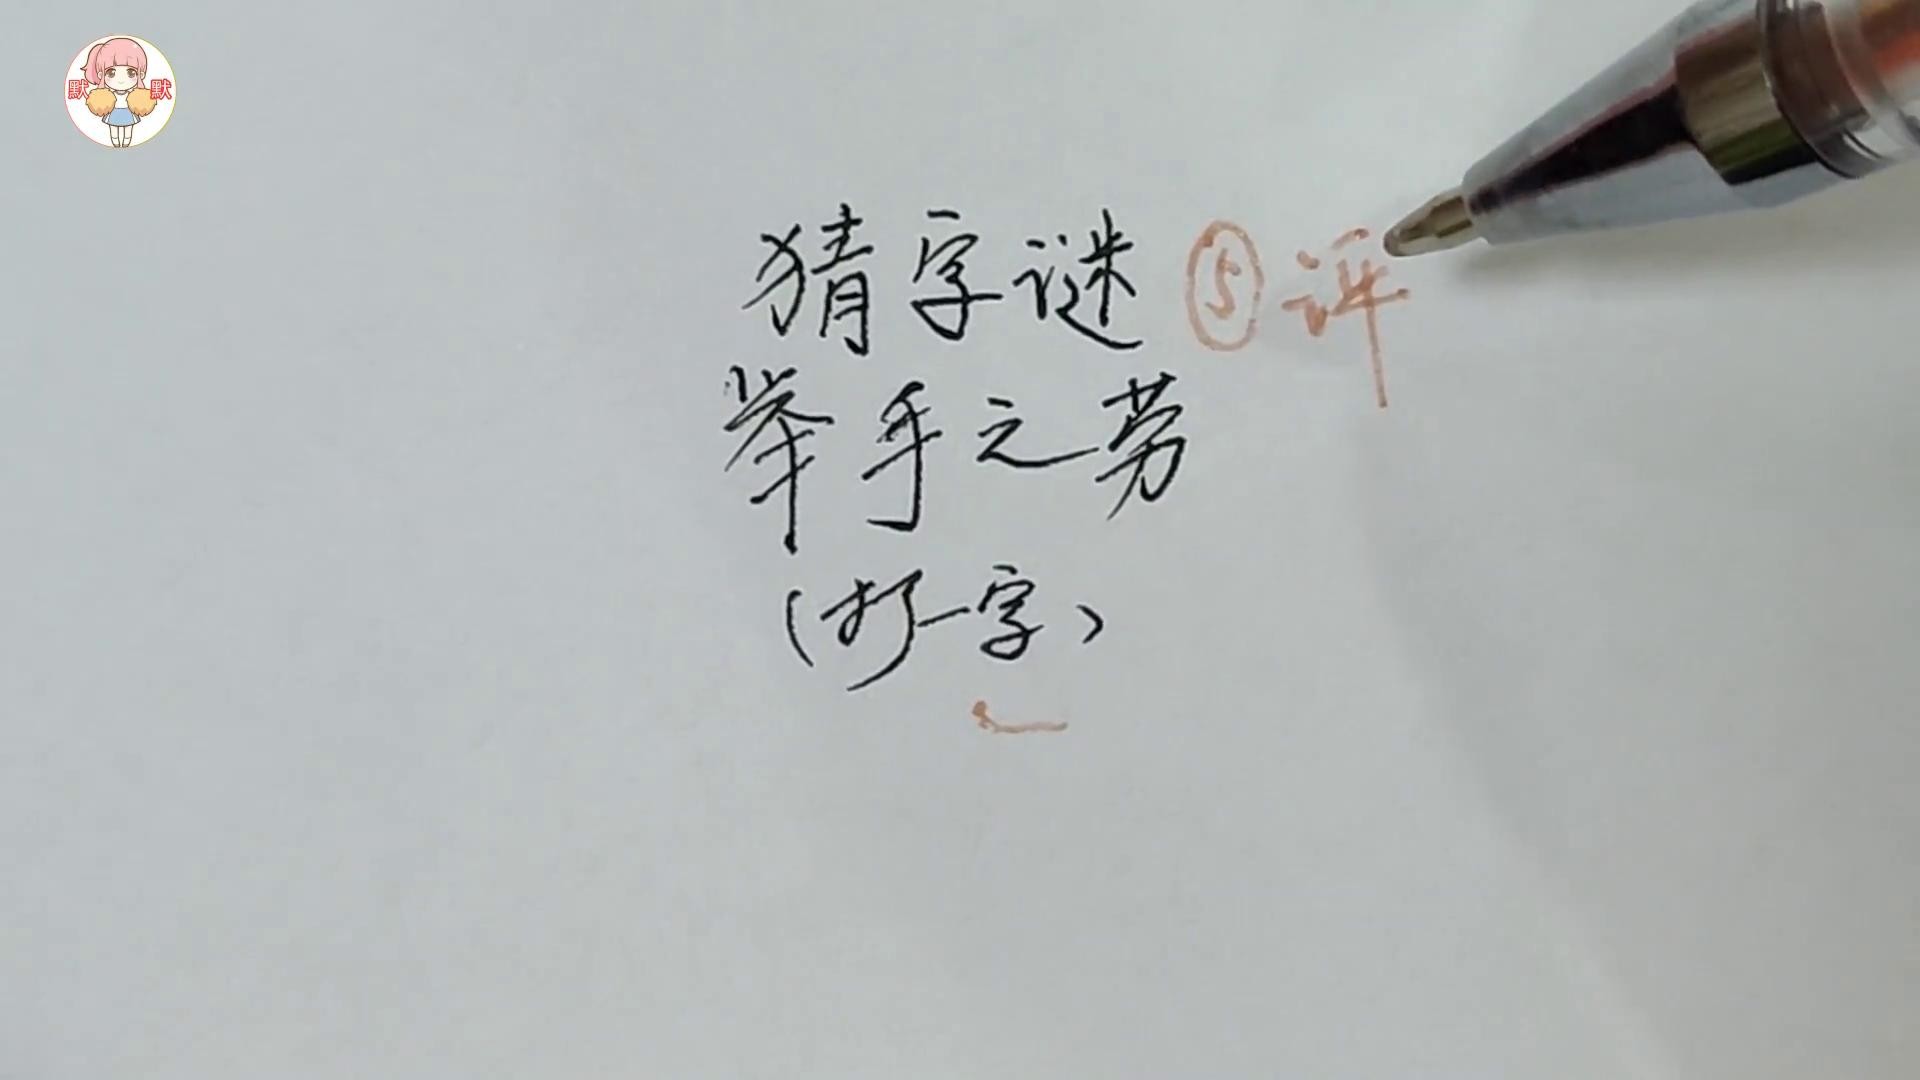 默 默
猜字谜 ⑤ 评
举手之劳
(打一字)